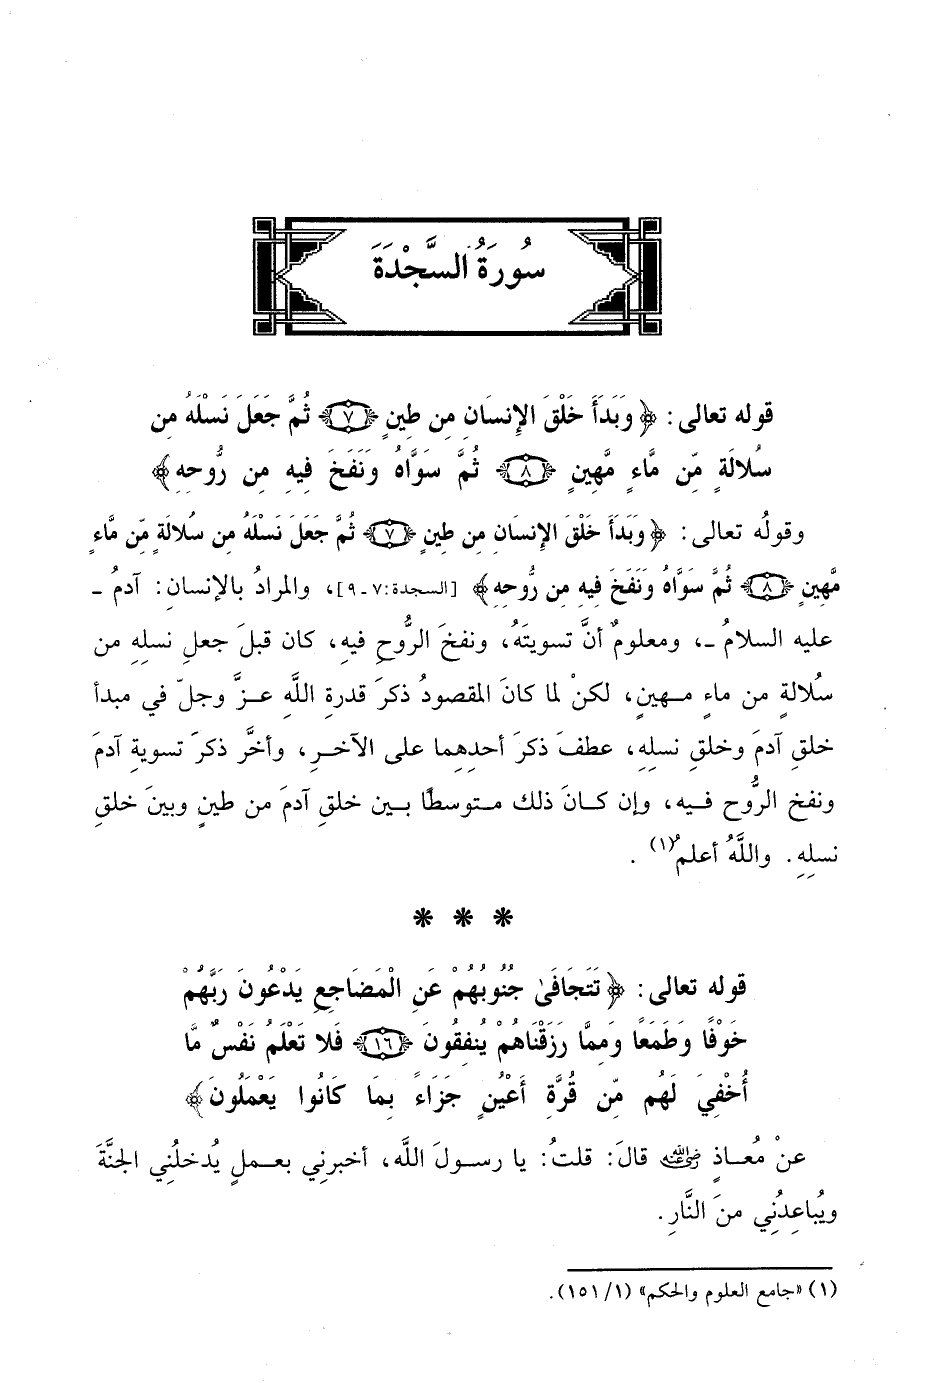 سُورَةُ السَّجْدَةِ
قوله تعالى: ﴿ وَبَدَأَ خَلْقَ الإِنسَانِ مِن طِينٍ ﴿٧﴾ ثُمَّ جَعَلَ نَسْلَهُ مِن
سُلالَةٍ مِّن مَّاءٍ مَّهِينٍ ﴿٨﴾ ثُمَّ سَوَّاهُ وَنَفَخَ فِيهِ مِن رُّوحِهِ ﴾
وقولُه تعالى: ﴿ وَبَدَأَ خَلْقَ الإِنسَانِ مِن طِينٍ ﴿٧﴾ ثُمَّ جَعَلَ نَسْلَهُ مِن سُلالَةٍ مِّن مَّاءٍ
مَّهِينٍ ﴿٨﴾ ثُمَّ سَوَّاهُ وَنَفَخَ فِيهِ مِن رُّوحِهِ ﴾ [السجدة: ٧ ـ ٩]، والمرادُ بالإنسانِ: آدمُ ـ
عليه السلامُ ـ، ومعلومٌ أنَّ تسويتَهُ، ونفخَ الرُّوحِ فيهِ، كان قبلَ جعلِ نسلِهِ من
سُلالةٍ من ماءٍ مهينٍ، لكنْ لما كانَ المقصودُ ذكرَ قدرةِ اللَّهِ عزَّ وجلّ في مبدأ
خلقِ آدمَ وخلقِ نسلِهِ، عطفَ ذكرَ أحدِهِما على الآخرِ، وأخَّر ذكرَ تسويةِ آدمَ
ونفخِ الرُّوح فيه، وإن كانَ ذلك متوسطًا بين خلقِ آدمَ من طينٍ وبينَ خلقِ
نسلِهِ. واللَّهُ أعلمُ(١) .
* * *
قوله تعالى: ﴿ تَتَجَافَىٰ جُنُوبُهُمْ عَنِ الْمَضَاجِعِ يَدْعُونَ رَبَّهُمْ
خَوْفًا وَطَمَعًا وَمِمَّا رَزَقْنَاهُمْ يُنفِقُونَ ﴿١٦﴾ فَلا تَعْلَمُ نَفْسٌ مَّا
أُخْفِيَ لَهُم مِّن قُرَّةِ أَعْيُنٍ جَزَاءً بِمَا كَانُوا يَعْمَلُونَ ﴾
عنْ مُعاذٍ رضي الله عنه قالَ: قلتُ: يا رسولَ اللَّه، أخبرنِي بعملٍ يُدخلُنِي الجنَّةَ
ويُباعِدُنِي منَ النَّارِ.
(١) «جامع العلوم والحكم» (١/ ١٥١).